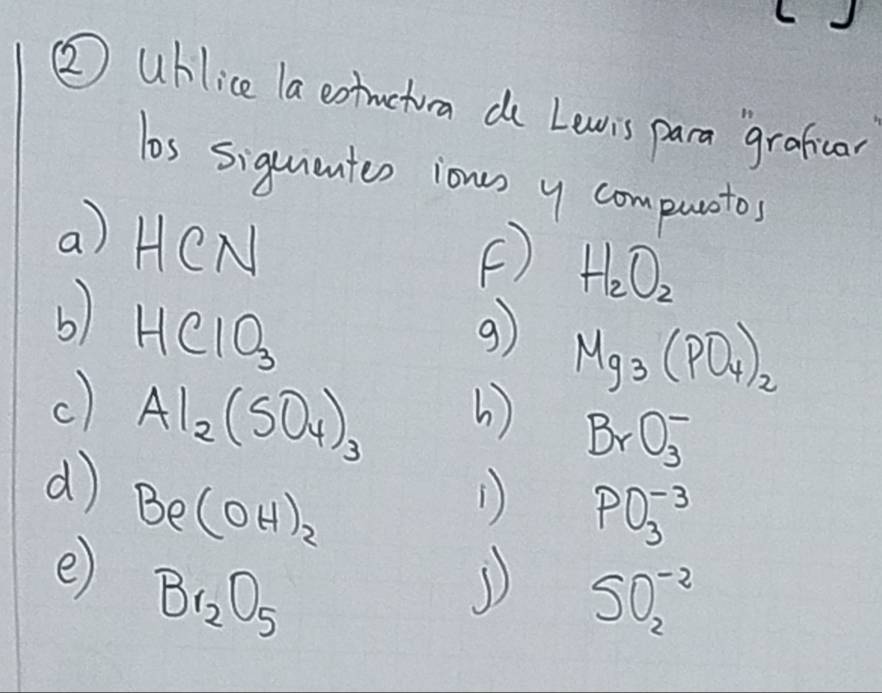 [ ]
② Utilice la estructura de Lewis para "graficar"
los siguientes iones y compuestos
a) HCN
b) HClO₃
c) Al₂(SO₄)₃
d) Be(OH)₂
e) Br₂O₅
f) H₂O₂
g) Mg₃(PO₄)₂
h) BrO₃⁻
i) PO₃⁻³
j) SO₂⁻²